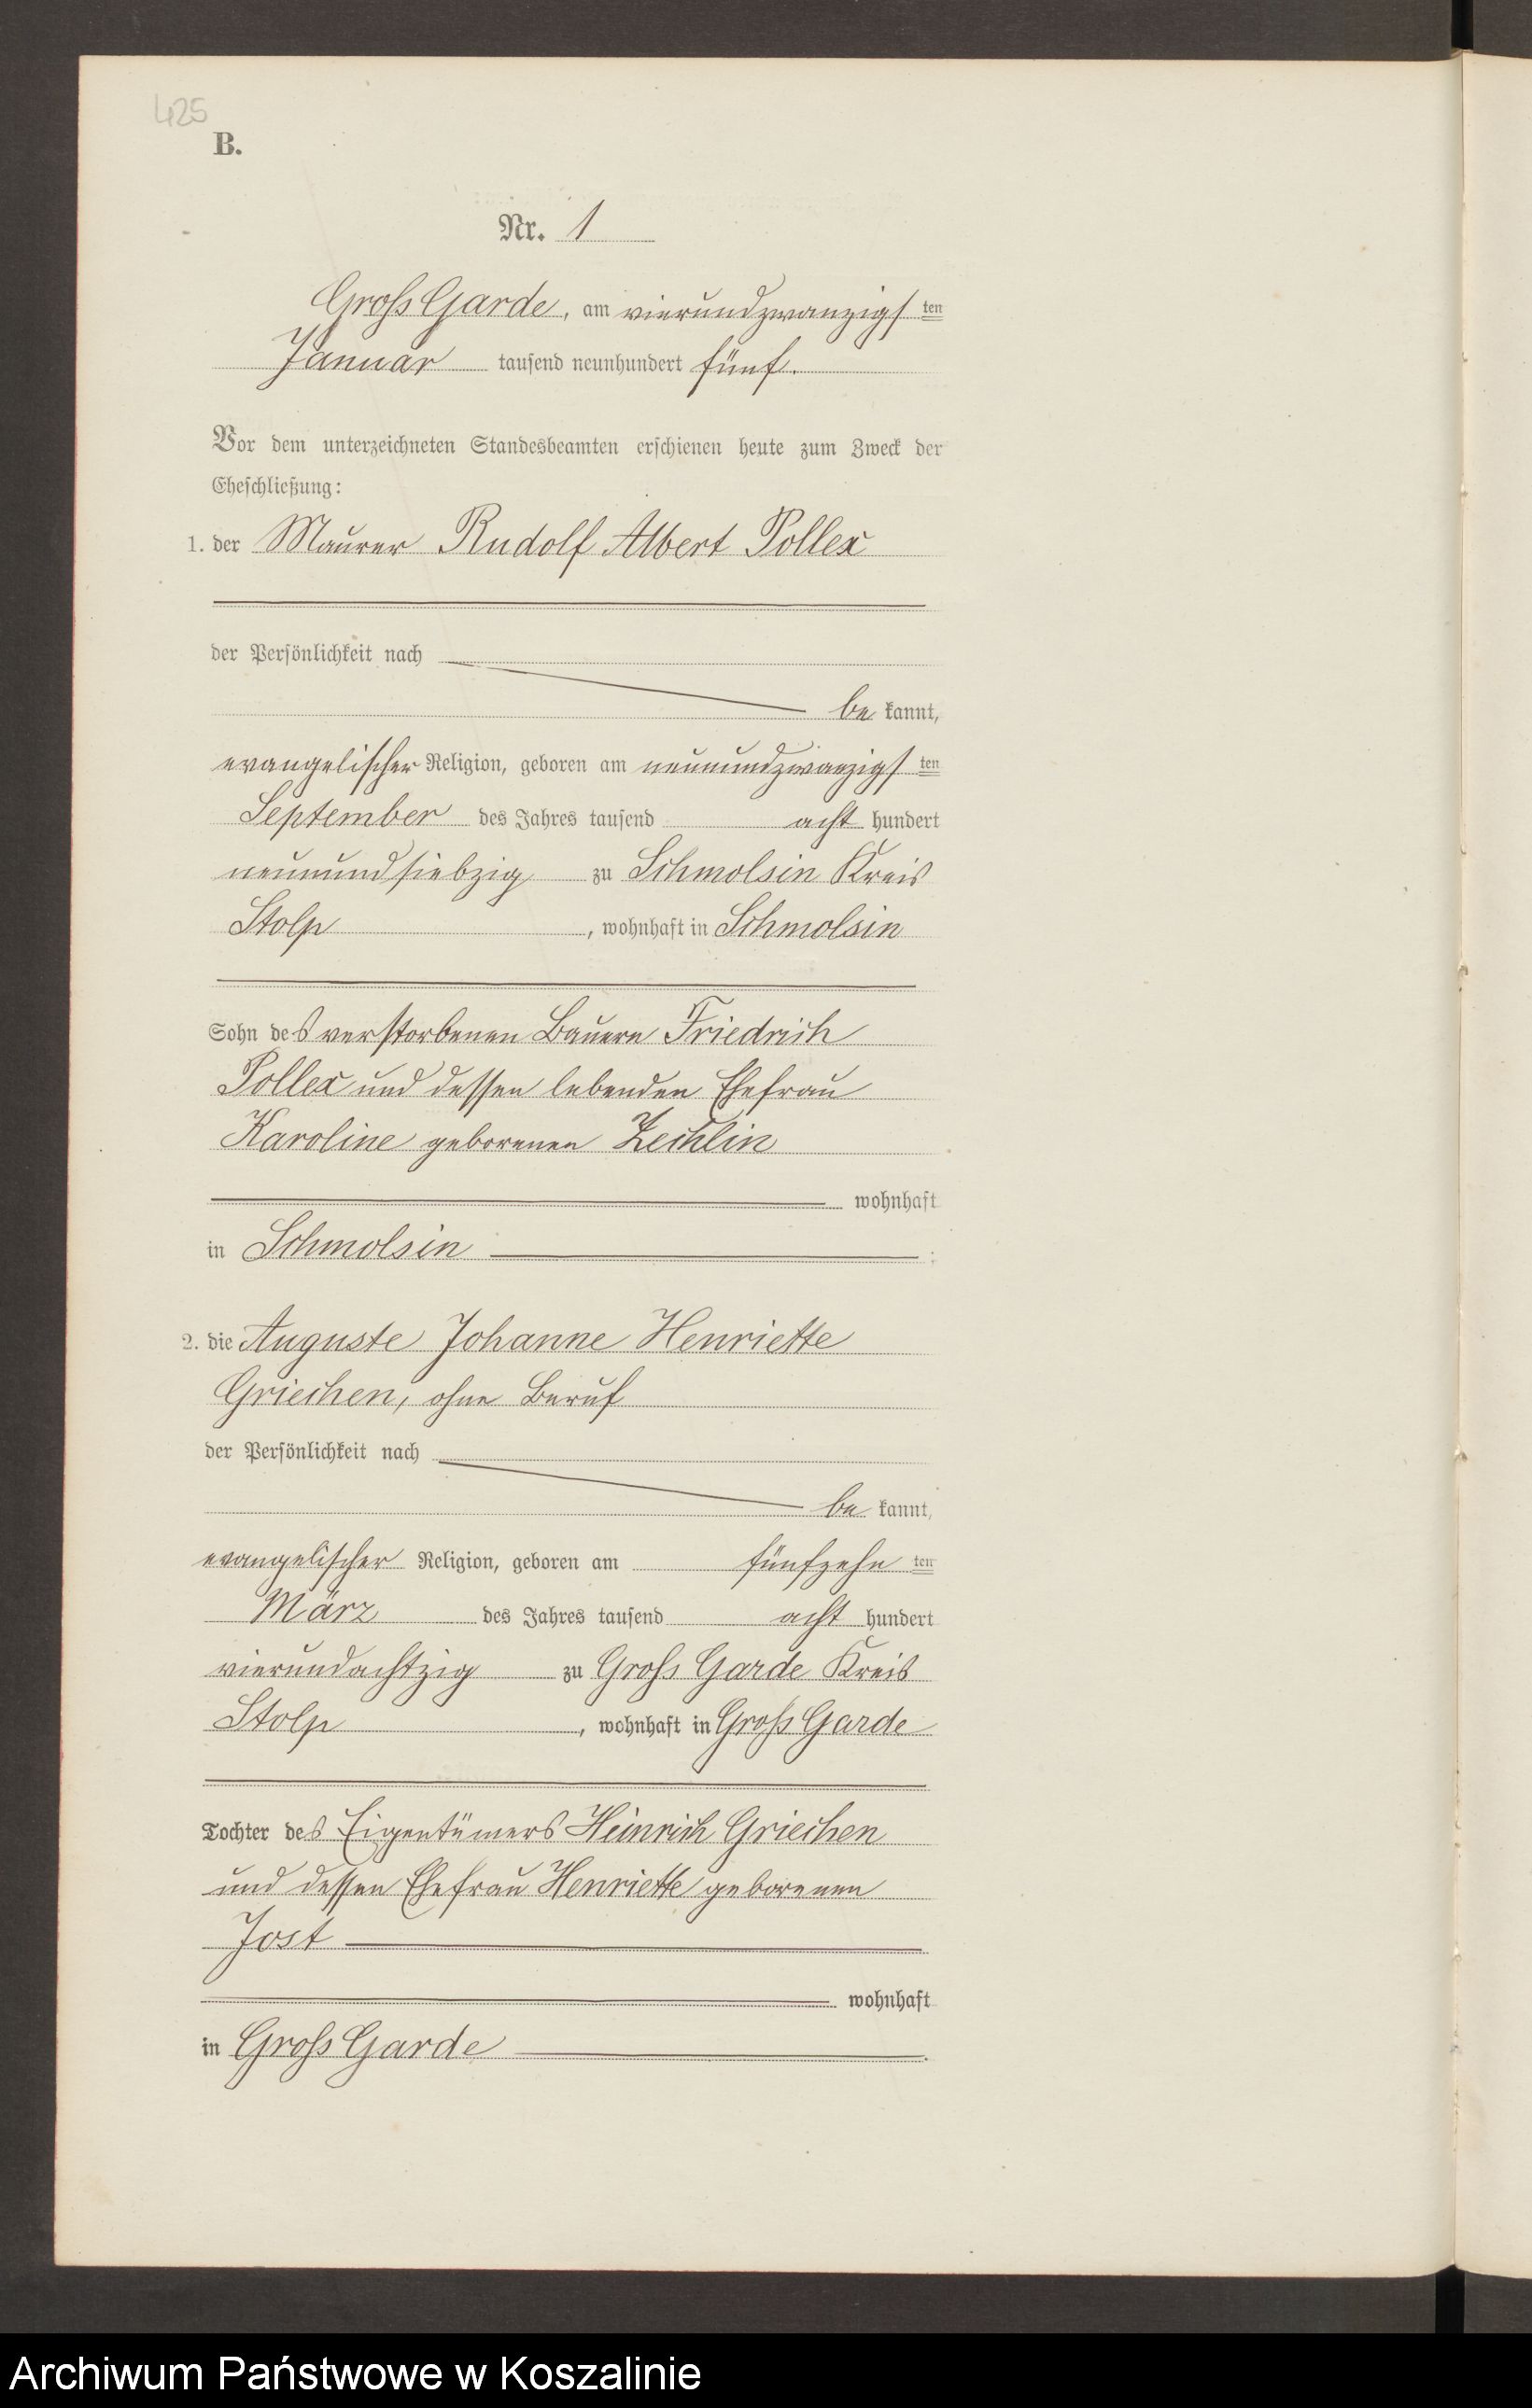 425
B.
Nr. 1
Gross Garde, am vierundzwanzigsten
Januar tausend neunhundert fünf.
Vor dem unterzeichneten Standesbeamten erschienen heute zum Zweck der
Eheschließung:
1. der Maurer Rudolf Albert Pollex
der Persönlichkeit nach
be kannt,
evangelischer Religion, geboren am neunundzwanzigsten
September des Jahres tausend acht hundert
neunundsiebzig zu Schmolsin Kreis
Stolp, wohnhaft in Schmolsin
Sohn des verstorbenen Bauern Friedrich
Pollex und dessen lebenden Ehefrau
Karoline geborenen Zechlin
wohnhaft
in Schmolsin ;
2. die Auguste Johanne Henriette
Griechen, ohne Beruf
der Persönlichkeit nach
be kannt,
evangelischer Religion, geboren am fünfzehnten
März des Jahres tausend acht hundert
vierundachtzig zu Gross Garde Kreis
Stolp, wohnhaft in Gross Garde
Tochter des Eigentümers Heinrich Griechen
und dessen Ehefrau Henriette geborenen
Jost
wohnhaft
in Gross Garde.
Archiwum Państwowe w Koszalinie